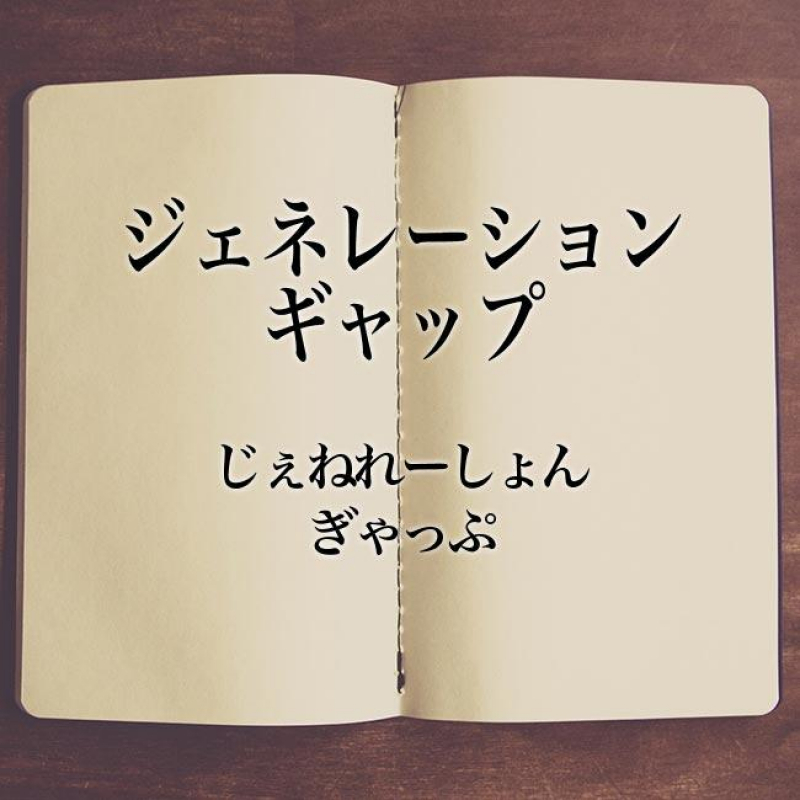 ジェネレーション
ギャップ
じぇねれーしょん
ぎゃっぷ